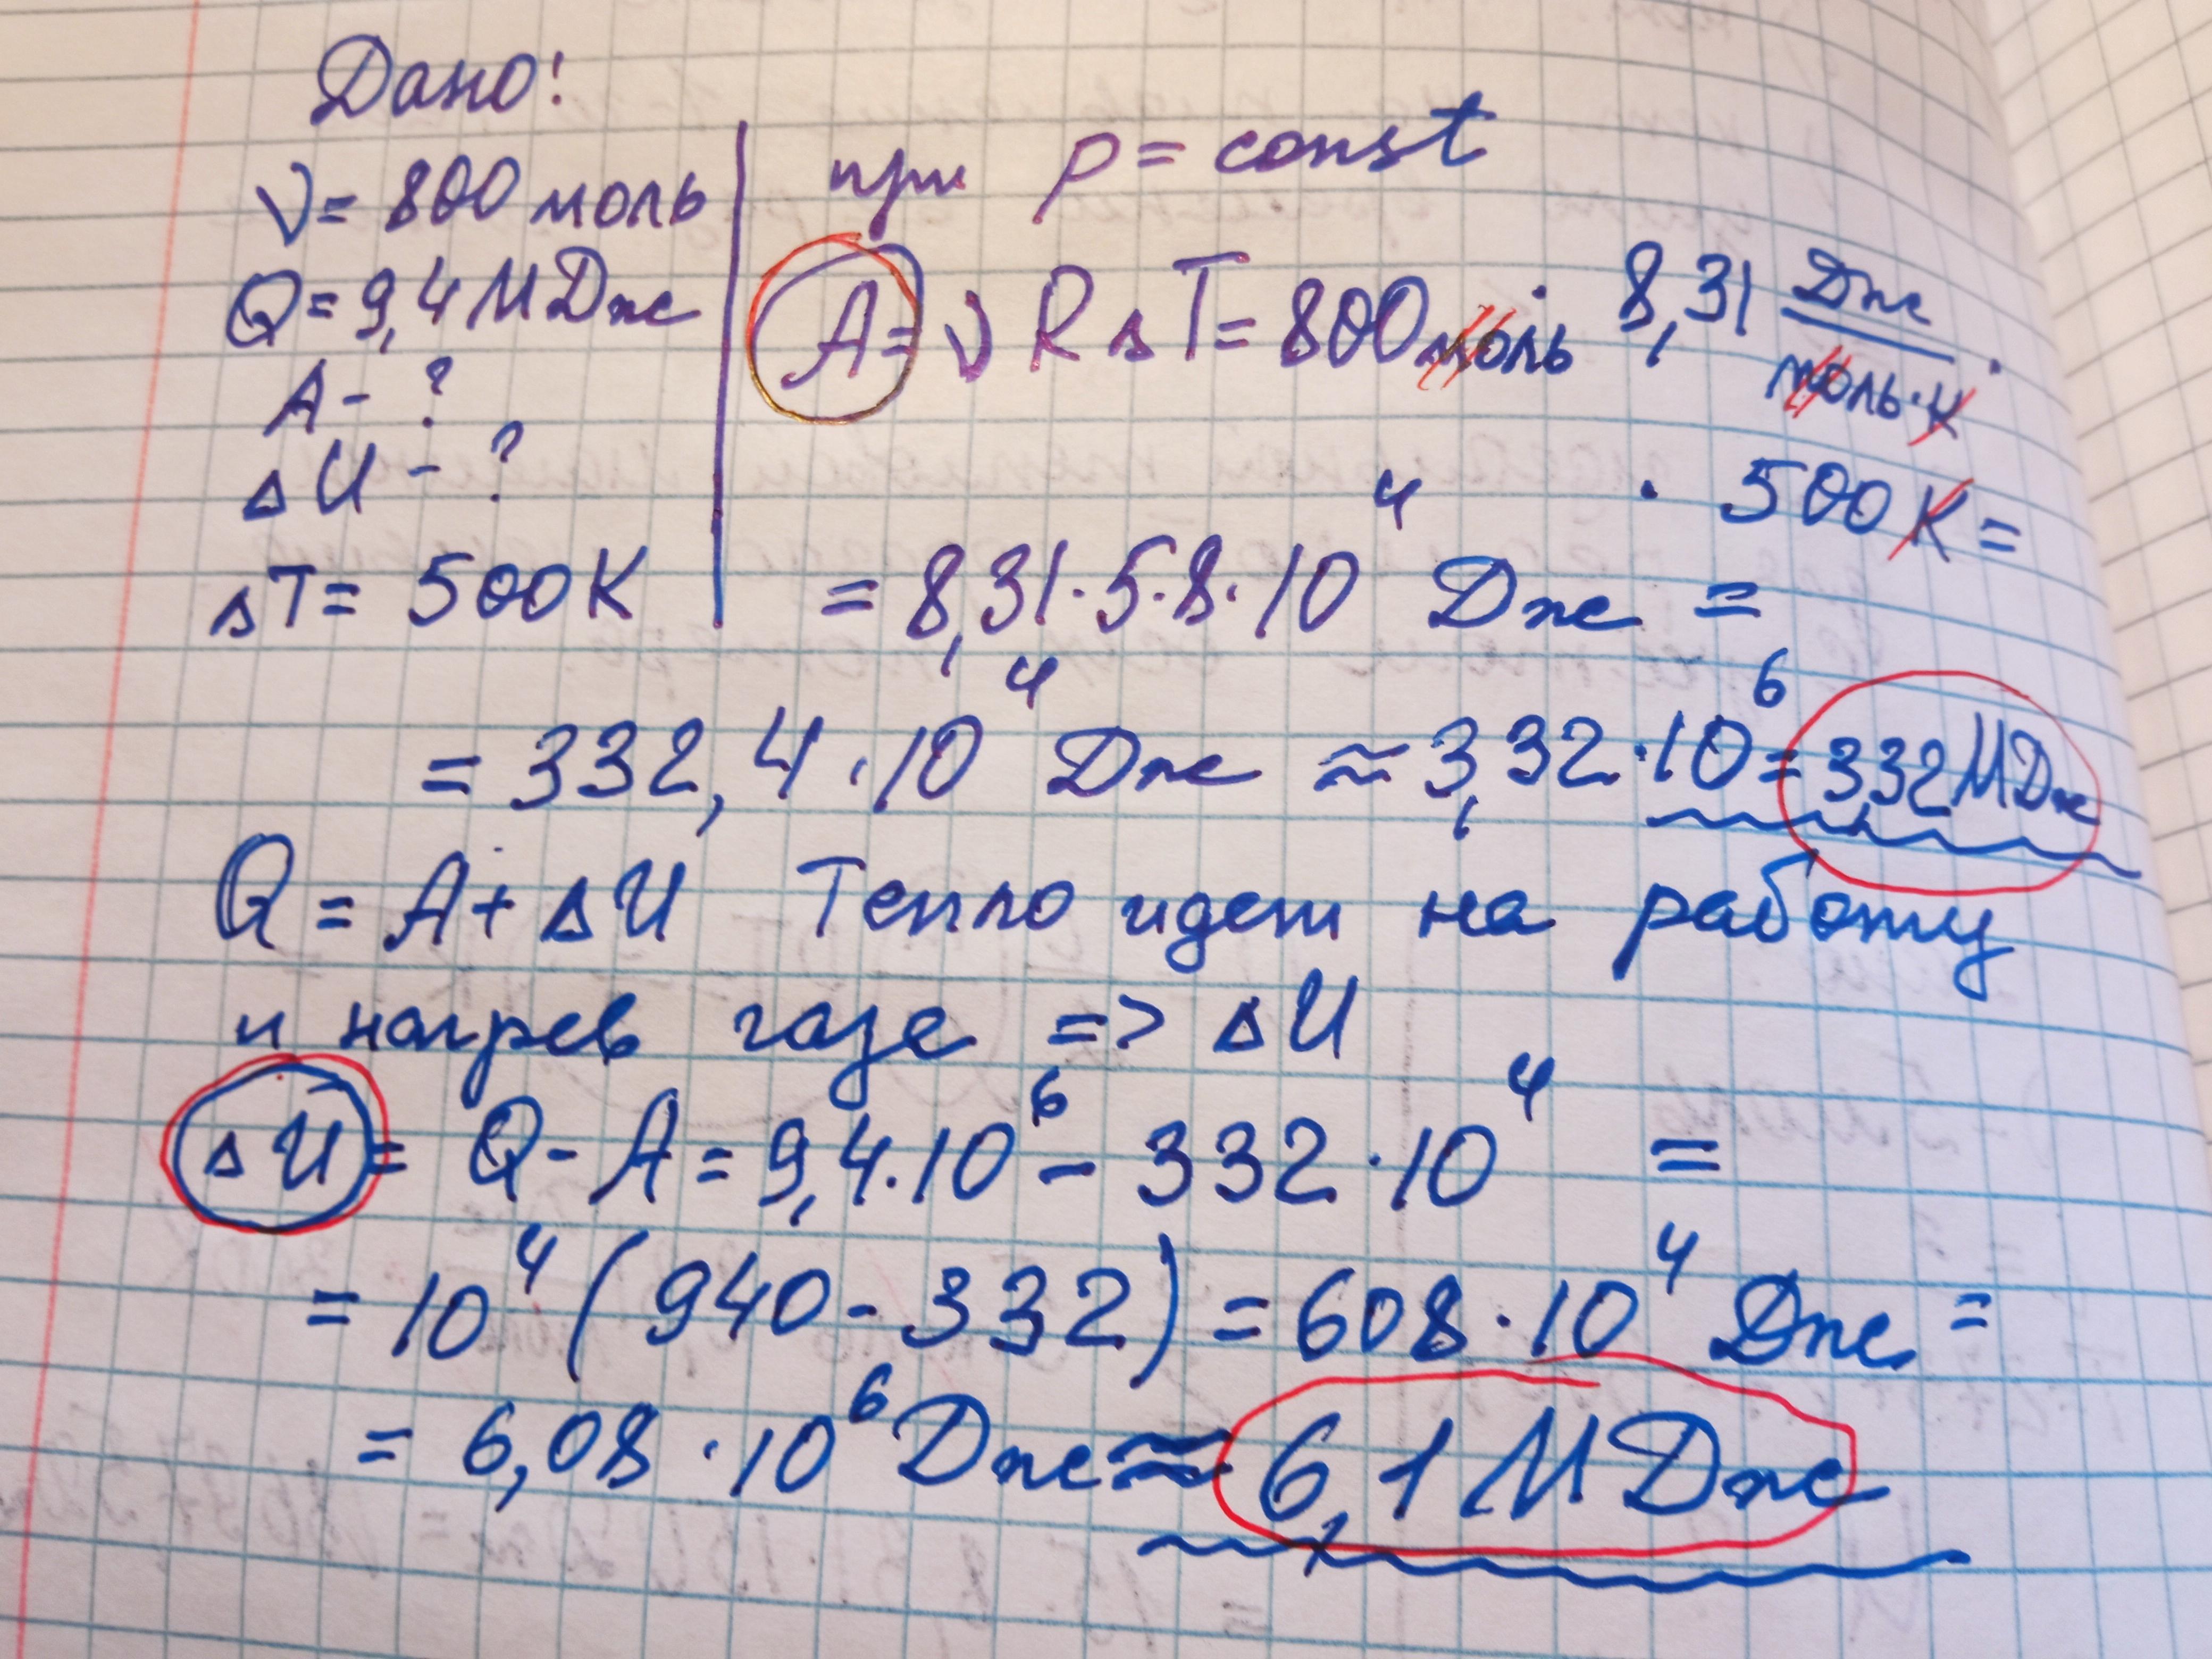 Дано!
ν = 800 моль
Q = 9,4 МДж
A - ?
ΔU - ?
ΔT = 500 К
при p = const
A = ν R ΔT = 800 моль · 8,31 Дж/моль·К ·
· 500 К =
= 8,31 · 5 · 8 · 10⁴ Дж =
= 332,4 · 10⁴ Дж ≈ 3,32 · 10⁶ = 3,32 МДж
Q = A + ΔU Тепло идет на работу
и нагрев газа => ΔU
ΔU = Q - A = 9,4 · 10⁶ - 332 · 10⁴ =
= 10⁴ (940 - 332) = 608 · 10⁴ Дж =
= 6,08 · 10⁶ Дж ≈ 6,1 МДж